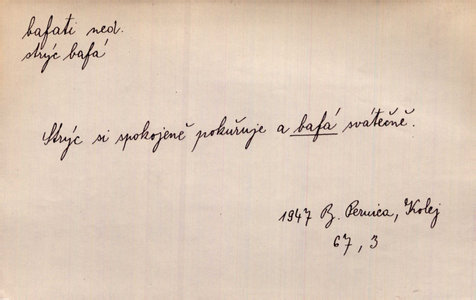 bafati ned.
strýc bafá
Strýc si spokojeně pokuřuje a bafá svátečně.
1947 B. Pernica, Kolej
67, 3